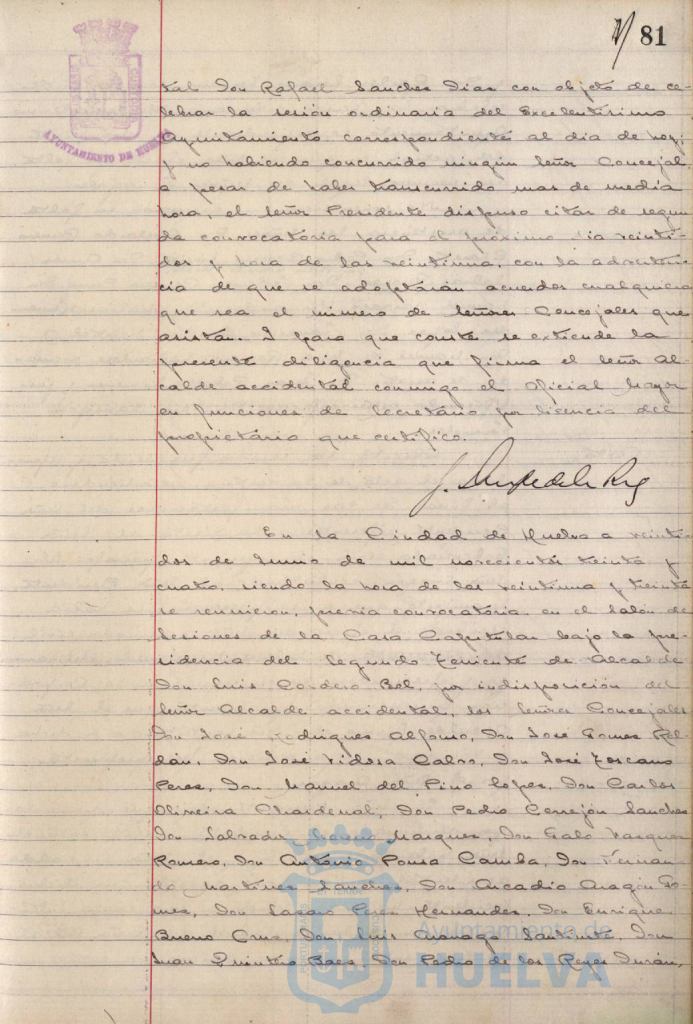 81
AYUNTAMIENTO DE HUELVA
tal Don Rafael Sanchez Diaz con objeto de ce-
lebrar la sesión ordinaria del Excelentísimo
Ayuntamiento correspondiente al dia de hoy;
y no habiendo concurrido ningún Señor Concejal
a pesar de haber transcurrido mas de media
hora, el señor Presidente dispuso citar de segun
da convocatória para el próximo dia veinti-
dos y hora de las veintiuna, con la adverten-
cia de que se adoptarán acuerdos cualquiera
que sea el número de Señores Concejales que
asistan. Y para que conste se extiende la
presente diligencia que firma el Señor Al-
calde accidental conmigo el Oficial Mayor
en funciones de Secretário por licencia del
propietário que certifico.
En la Ciudad de Huelva a veinti-
dos de Junio de mil novecientos treinta y
cuatro, siendo la hora de las veintiuna y treinta
se reunieron, previa convocatória, en el Salón de
Sesiones de la Casa Capitular bajo la pre-
sidencia del Segundo Teniente de Alcalde
Don Luis Cordero Bel, por indisposición del
Señor Alcalde accidental, los Señores Concejales
Don José Rodrigues Alfonso, Don José Gomez Rol-
dán, Don José Vidosa Calvo, Don José Toscano
Perez, Don Manuel del Pino Lopez, Don Carlos
Oliveira Chardenal, Don Pedro Cerrejón Sanchez
Don Salvador Moreno Marquez, Don Galo Vazquez
Romero, Don António Pousa Camba, Don Fernan-
do Martinez Sanchez, Don Arcadio Aragón Go-
mez, Don Lazaro Perez Hernandez, Don Enrique
Bueno Cruz, Don Luis Don
Juan Quintero Baez, Don Pedro de los Reyes Durán,
Ayuntamiento de
HUELVA